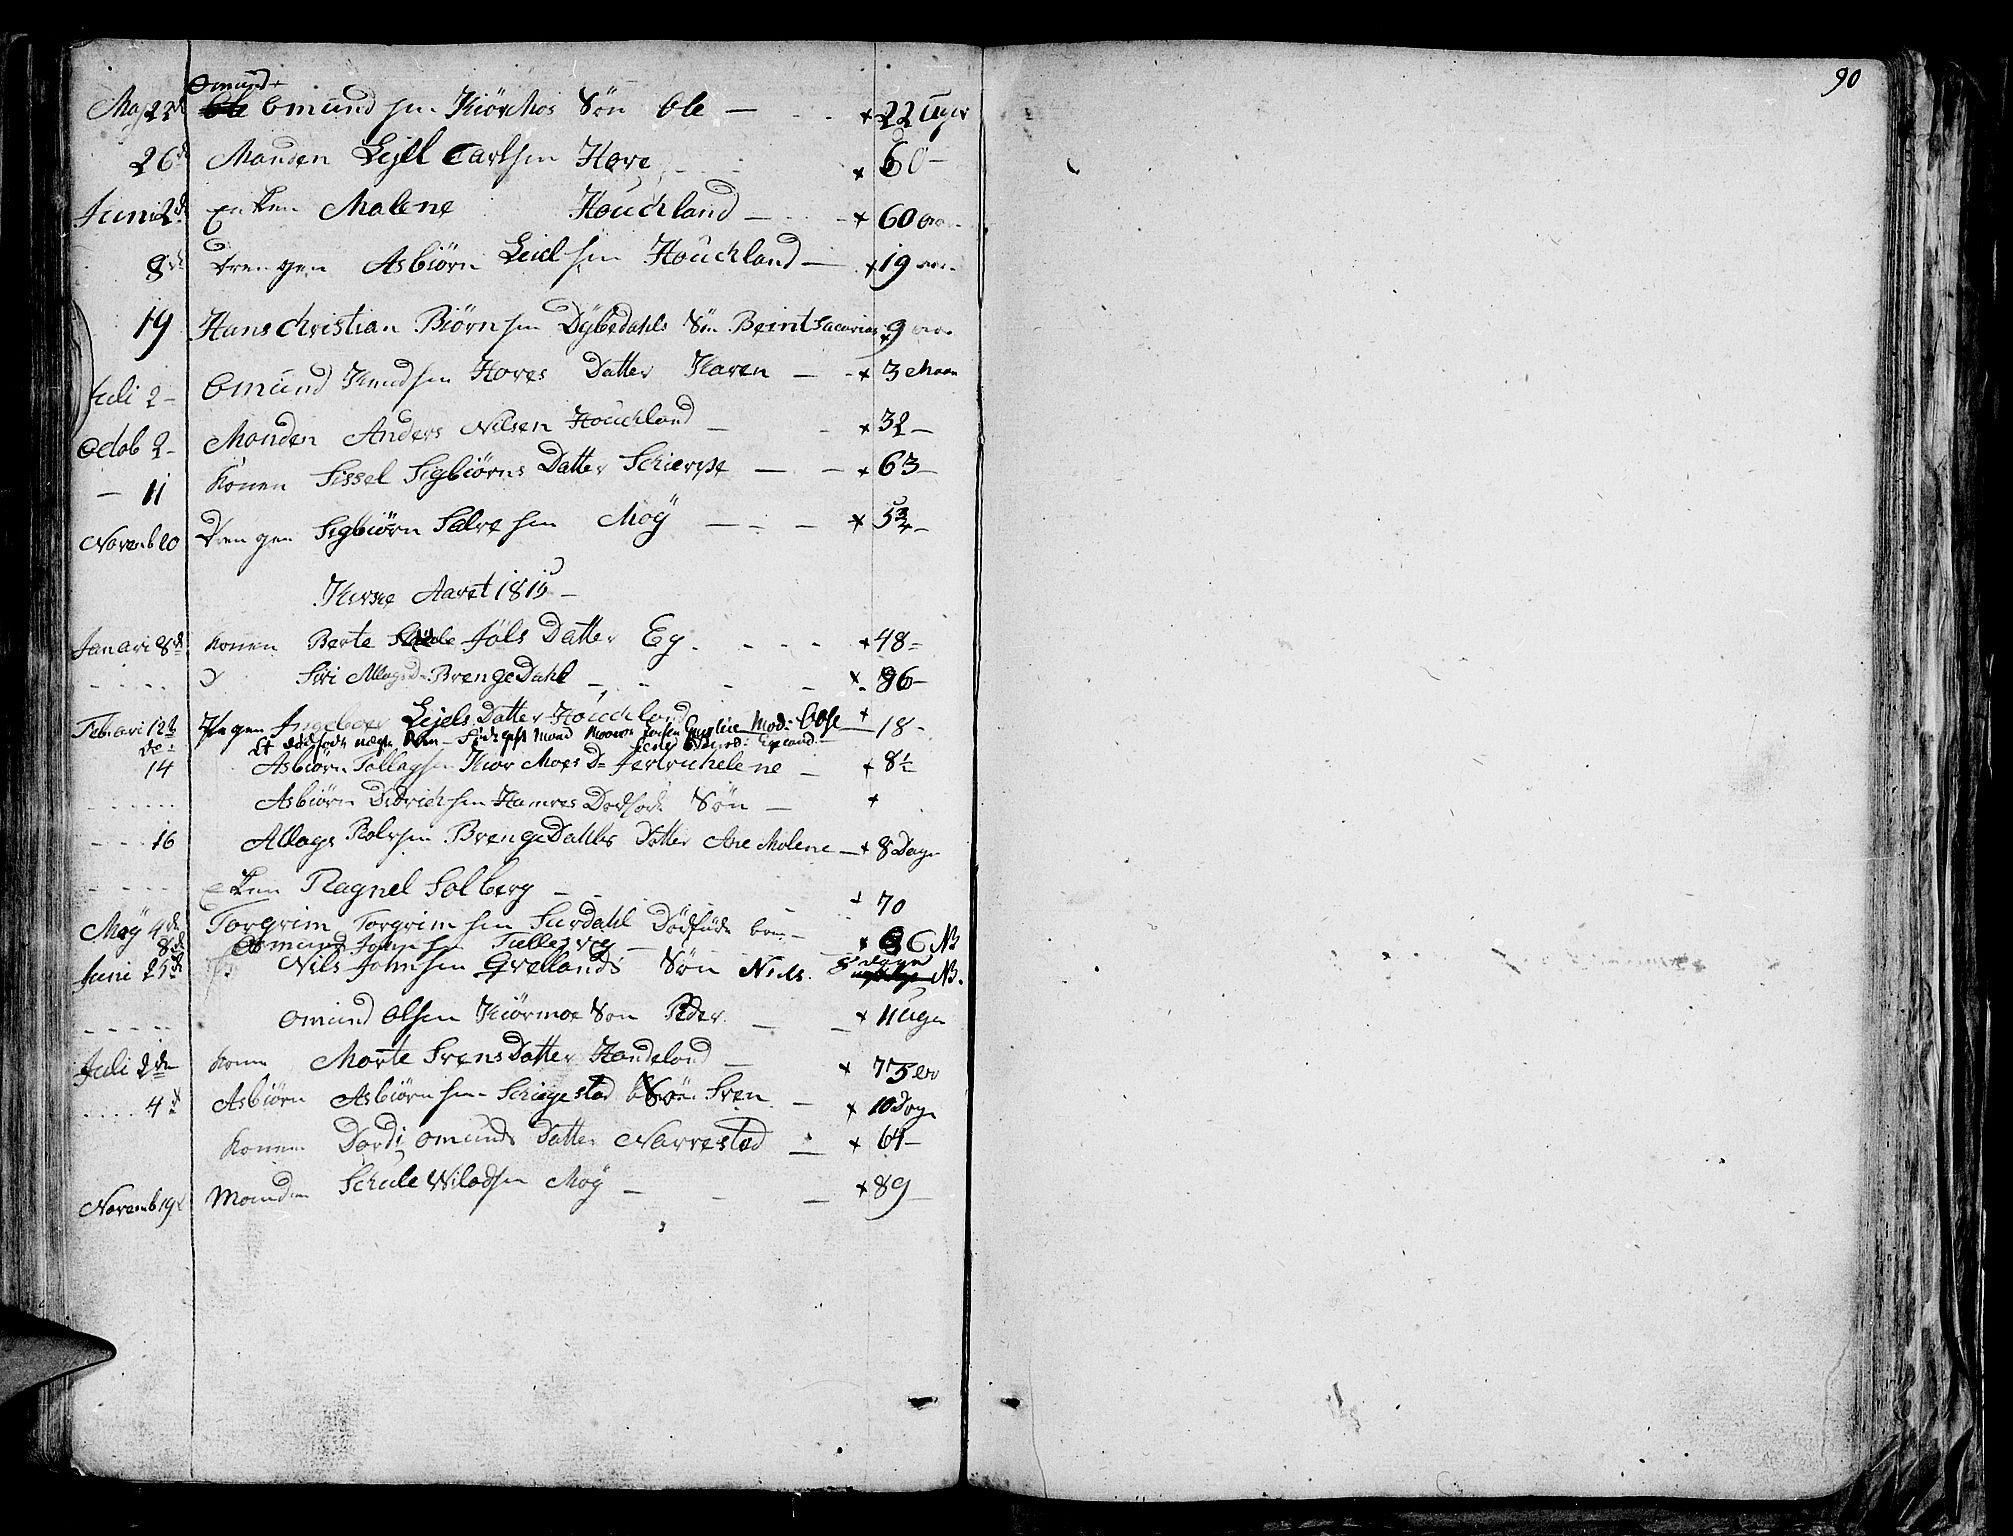 90
Omund +
Maj 23 d Omund sen Kiørmos Søn Ole — × 22 Uger
26 d Manden Lejel Carlsen Hove × 60 —
Juni 2 d Enken Malene Houchland — × 60 aar
8 d Drengen Asbiørn Leiel sen Houchland — × 19 aar
19 Hans Christian Biørn sen Dÿbedahls Søn Beint × 9 aar
Juli 2 — Omund Knudsen Hoves Datter Karen — × 3 Maan
Octob 2 — Manden Anders Nilsen Houchland — × 32 —
— 11 Konen Sissel Sigbiørns Datter — × 63 —
Novemb 20 Drengen Sigbiørn Salve sen Moÿ — × 5 3/4 —
Aaret 1815 —
Januari 8 d Konen Berte Jøls Datter Eg × 48 —
Siri Allagsd — BrengeDahl — × 86 —
Februari 12 Pigen Ingeboer Lejels Datter Houchland × 18 —
14 Asbiørn Tollagsen Kior Moes D — × 8 1/2
Asbiørn Didrichsen Hamres Dødføde Søn — ×
16 Allags Rolvsen BrengeDahls Datter Ane Malene — × 8 Dage
Enken Ragnel Solberg — × 70
Maÿ 4 de Torgrim Torgrimsen Surdahl Dødføde barn —
8 de Omund John sen × 6 NB
Juni 25 d Nils Johnsen Grellands Søn Niels 8 dage NB.
Omund Olsen Kiørmoe Søn Peder — × 11 Uger
Juli 2 de Kone Marte SvensDatter Handeland — × 75 aar
4 d Asbiørn Asbiørnsen Schiegestad Søn Sven — × 10 Dage
Konen Dordi Omunds Datter Narrestad — × 64 —
Novemb 19 Manden Schule Wiladsen Moÿ — × 89 —